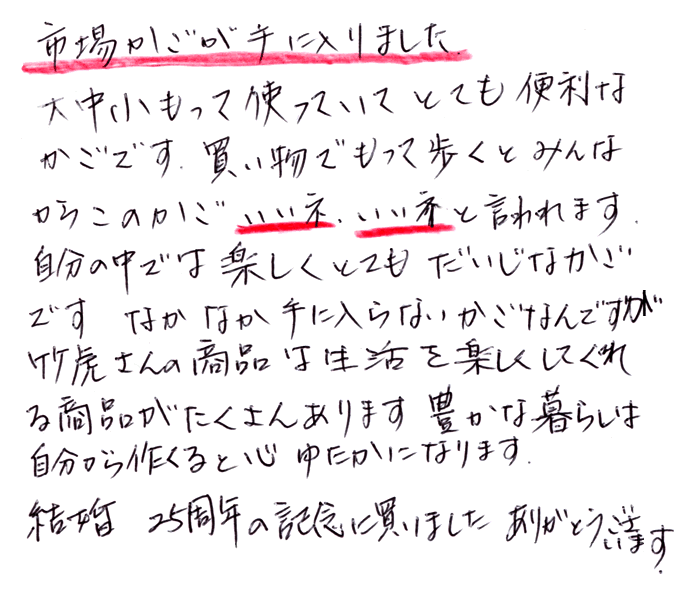 市場かごが手に入りました.
大中小もって使っていて とても便利な
かごです. 買い物でもって歩くと みんな
からこのかご いいネ. いいネ と言われます.
自分の中では 楽しくとても だいじなかご
です なか なか手に入らないかごなんですが
竹虎さんの商品は生活を楽しくしてくれ
る商品がたくさんあります 豊かな暮らしは
自分から作くると心 ゆたかになります.
結婚 25周年の記念に買いました ありがとうございます.